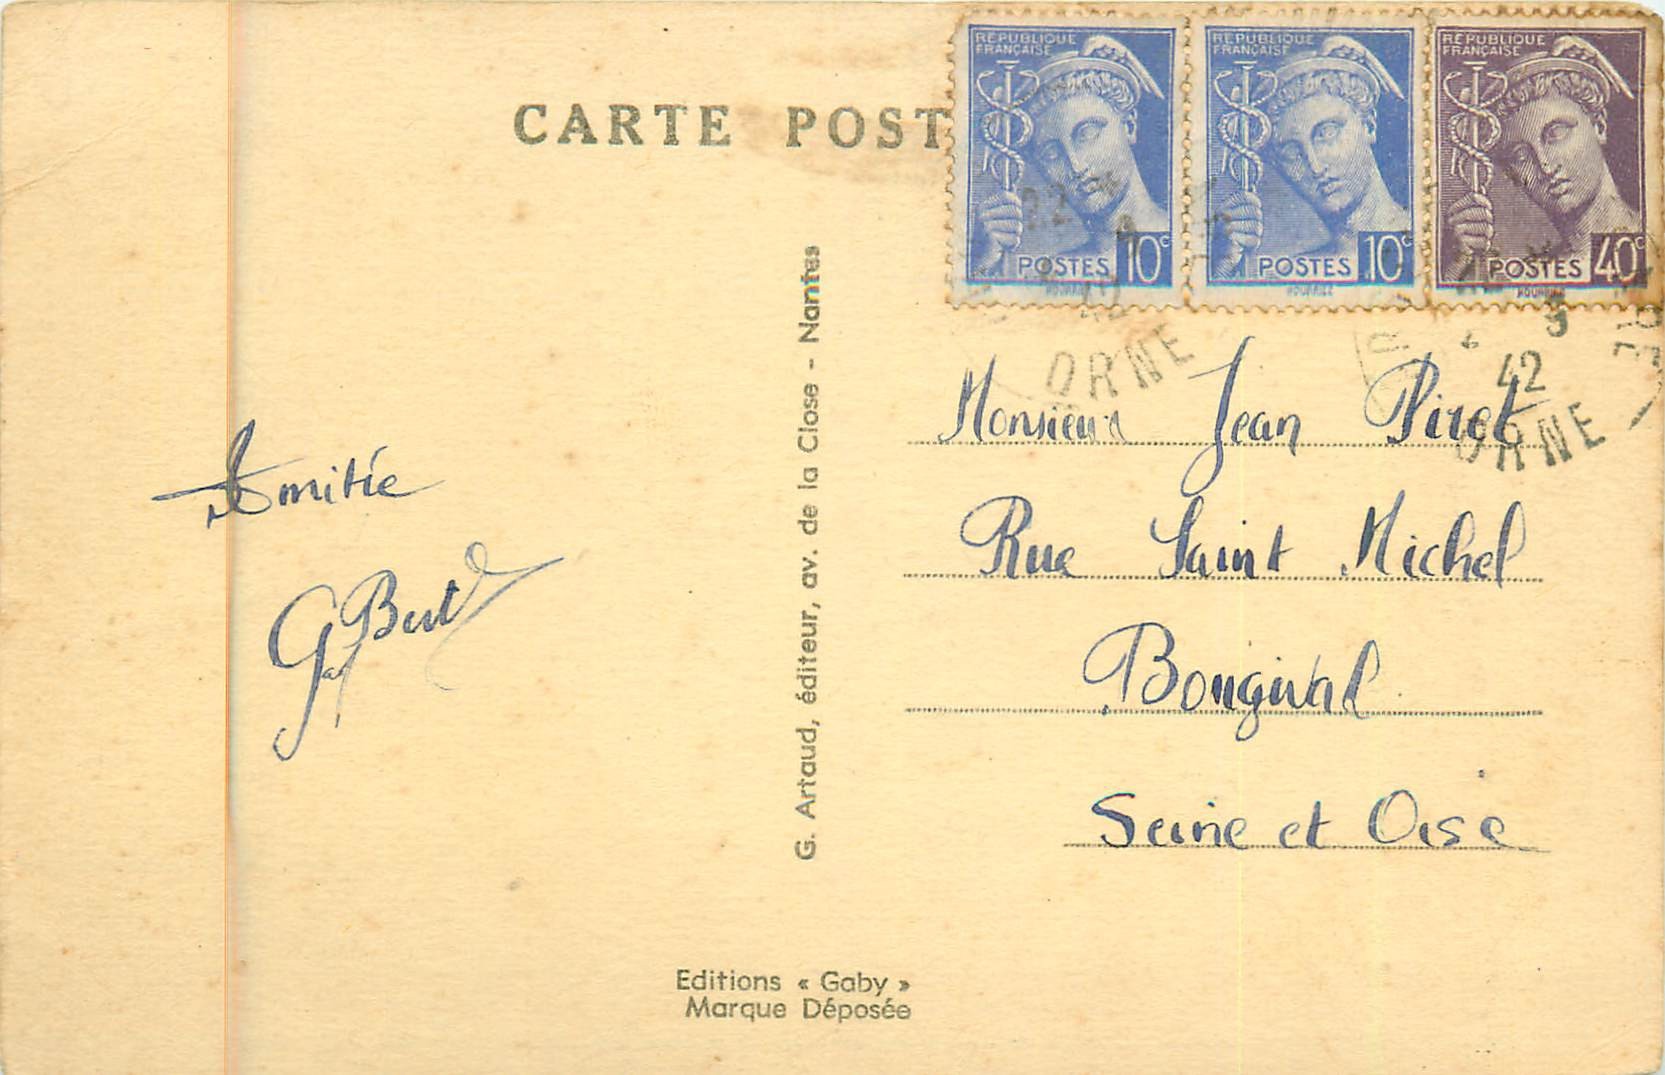 CARTE POST
RÉPUBLIQUE
FRANÇAISE
POSTES 10c
RÉPUBLIQUE
FRANÇAISE
POSTES 10c
RÉPUBLIQUE
FRANÇAISE
POSTES 40c
ORNE
42
ORNE
Amitié
G. Artaud, éditeur, av. de la Close - Nantes
Monsieur Jean Pirot
Rue Saint Michel
Bougival
Seine et Oise
Editions « Gaby »
Marque Déposée